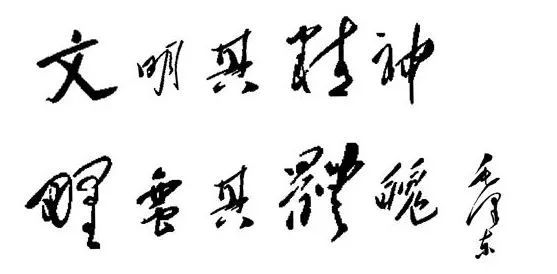 文明其精神
野蛮其體魄 毛泽东